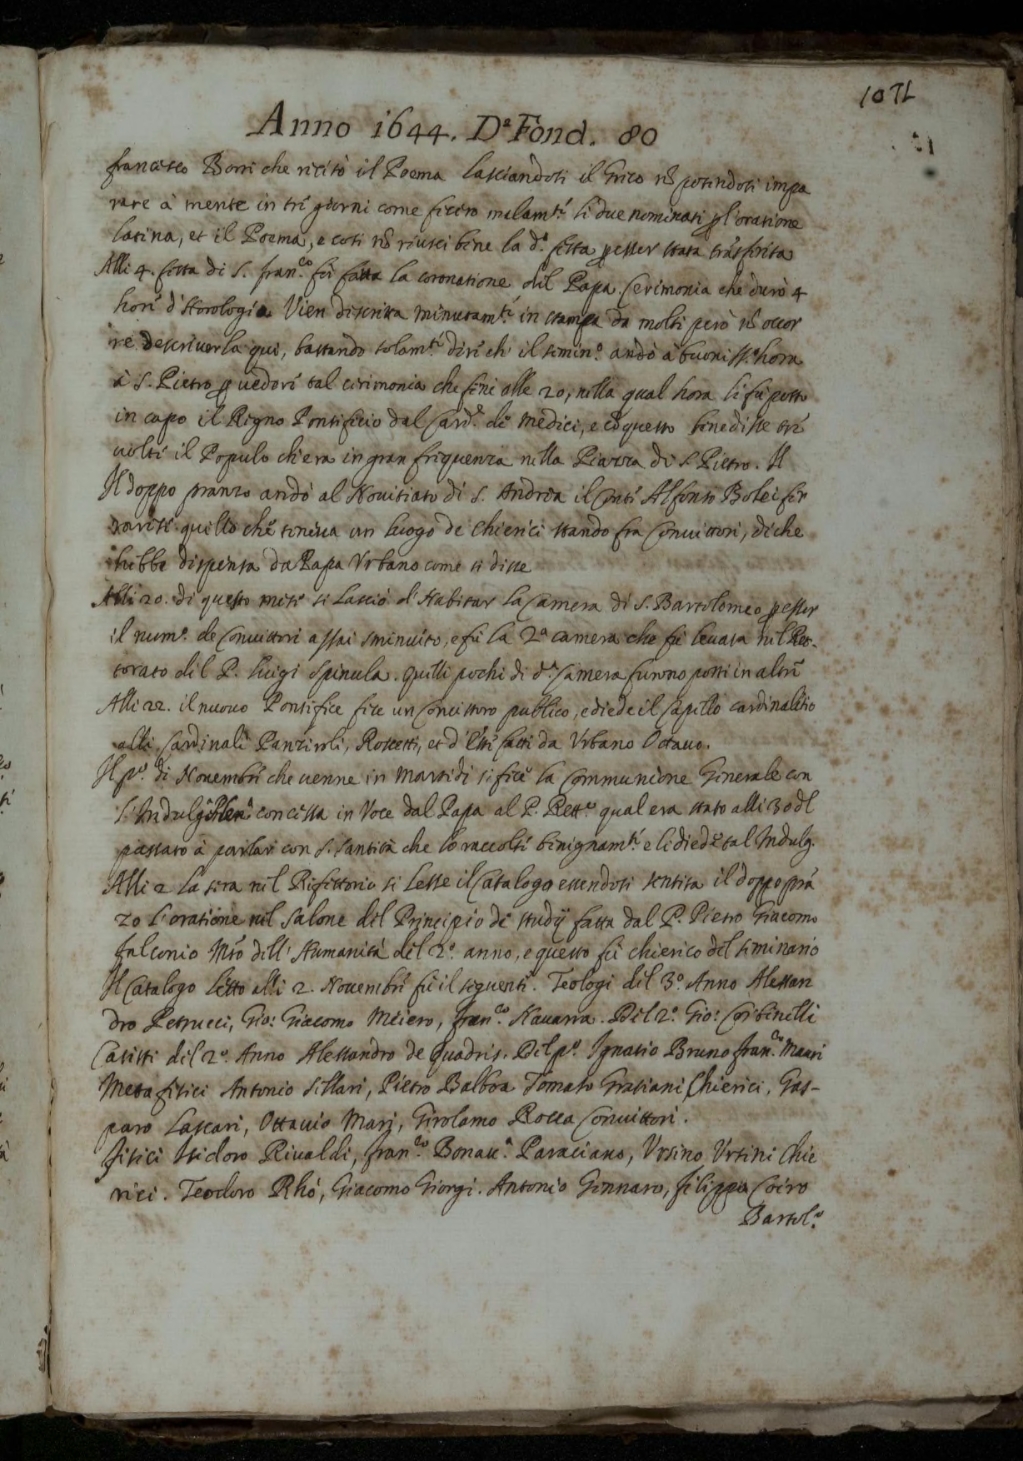 1071
Anno 1644. Dª Fond. 80
francesco Borri che recitò il Poema lasciandosi il Greco nõ potendosi impa
rare à mente in tré giorni come fecero melamte li due nominati p l'oratione
latina, et il Poema, e così nõ riuscì bene la dª festa p esser stata trãsferita
Alli 4. festa di S. Franco fù fatta la coronatione del Papa. Cerimonia che durò 4
hore d'Horologio. Vien descritta minutamte in stampa da molti però nõ occor
re descriverla quì, bastando solamte dire ch' il Semino andò à buonissma hora
à S. Pietro p vedere tal cerimonia che finì alle 20, nella qual hora li fù posto
in capo il Regno Pontificio dal Cardle de Medici, e cõ questo benedisse trè
volte il Populo ch'era in gran frequenza nella Piazza di S. Pietro. Il
Il doppo pranzo andò al Novitiato di S. Andrea il Conte Alfonso Bolei fer
rarese quello che teneva un luogo de Chierici stando fra Convittori, di che
hebbe dispensa da Papa Urbano come si disse
Alli 20. di questo mese si lasciò d'Habitar la Camera di S. Bartolomeo p esser
il numo de Convittori assai sminuito, e fù la 2ª camera che fù levata nel Ret-
torato del P. Luigi Spinula. Quelli pochi di dª Camera furono posti in altre
Alli 22. il nuovo Pontefice fece un Concistoro publico, e diede il Capello cardinalitio
alli Cardinali Panziroli, Rossetti, et d'Este fatti da Urbano Ottavo.
Il po di Novembre che venne in Martedì si fece la Communione Generale con
l'Indulg Plena concessa in Voce dal Papa al P. Rettre qual era stato alli 30 del
passato à parlar con S. Santità che lo raccolse benignamte e li diede tal Indulg.
Alli 2 la sera nel Refettorio si lesse il Catalogo essendosi sentita il doppo prã
zo l'oratione nel Salone del Principio de studij fatta dal P. Pietro Giacomo
falconio Mro dell'Humanità del 2º anno, e questo fù chierico del Seminario
Il Catalogo letto alli 2. Novembre fù il seguente. Teologi del 3º Anno Alessan
dro Petrucci, Gio: Giacomo Meiero, Franco Navarra. Del 2º Gio: Corbinelli
Casisti del 2º Anno Alessandro de Quadris. Del po Ignatio Bruno Franco Mauri
Metafisici Antonio Sillari, Pietro Balboa Tomaso Gratiani Chierici. Gas-
paro Lascari, Ottavio Mari, Girolamo Rocca Convittori.
Fisici Isidoro Rivaldi, Franco Bonava Paraciano, Ursino Ursini Chie
rici. Teodoro Rhó, Giacomo Giorgi. Antonio Gennaro, Filippo Coiro
Bartolo